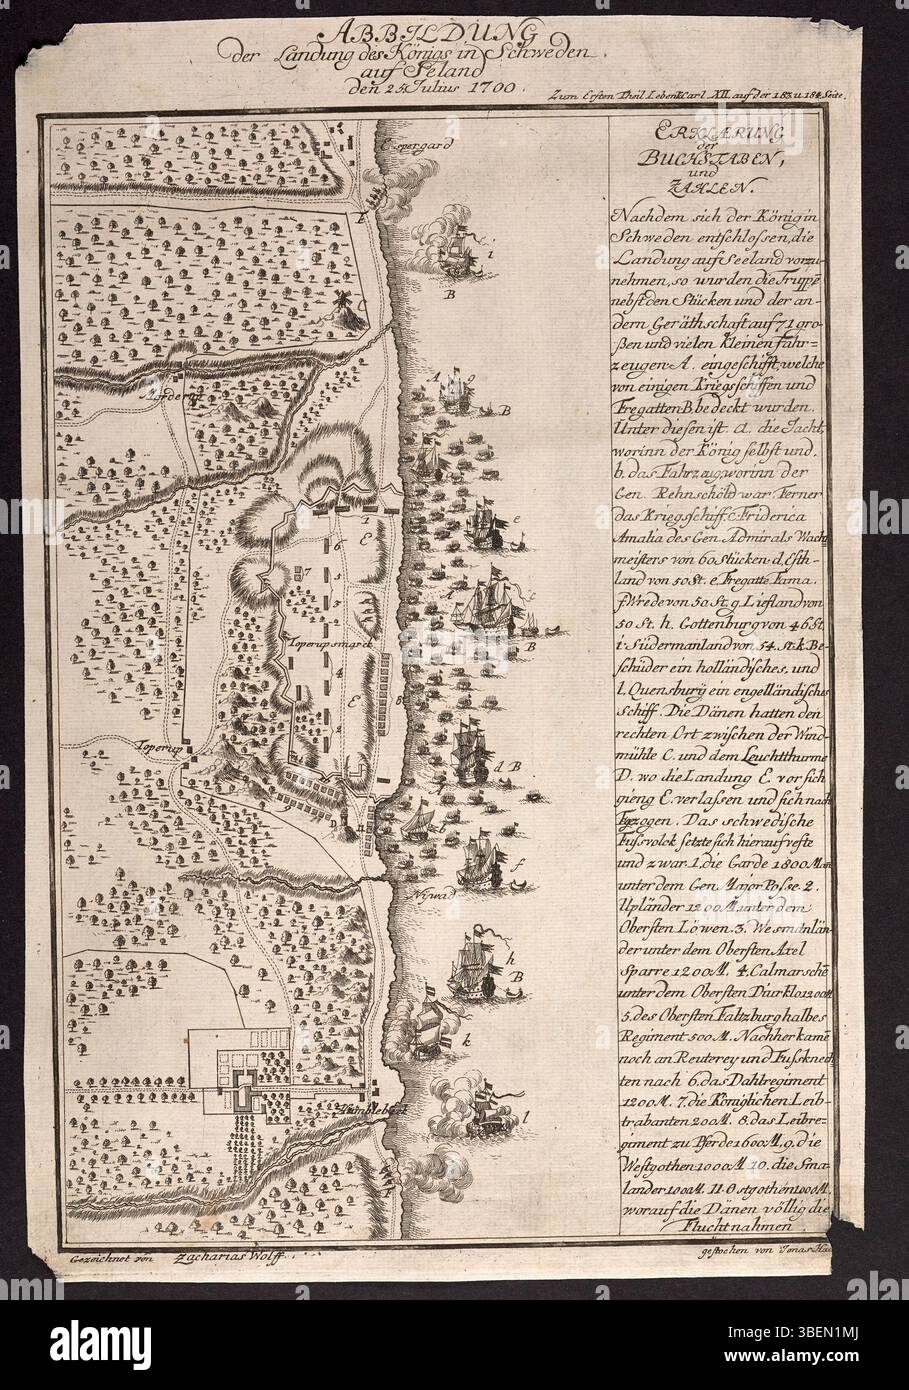 ABBILDUNG
der Landung des Königs in Schweden
auf Seland
den 25 Julius 1700.
Zum Ersten Theil Lebens Carl XII. auf der 183 u 184 Seite.
ERKLÆRUNG
der
BUCHSTABEN,
und
ZAHLEN.
Nachdem sich der König in
Schweden entschlossen, die
Landung auf Seeland vorzu-
nehmen, so wurden die Truppē
nebst den Stücken und der an-
dern Geräthschaft auf 71 gro-
ßen und vielen kleinen Fahr-
zeugen A. eingeschifft, welche
von einigen Kriegsschiffen und
Fregatten B. bedeckt wurden.
Unter diesen ist a. die Jacht,
worinn der König selbst und
b. das Fahrzeug, worinn der
Gen. Rehnschöld war Ferner
das Kriegsschiff c. Friderica
Amalia des Gen Admirals Wacht
meisters von 60 Stücken. d. Esth-
land von 50 St. e. Fregatte Fama.
f. Wrede von 50 St. g. Liefland von
50 St. h. Gottenburg von 46 St.
i. Südermanland von 54. St. k. Be-
schüder ein holländisches, und
l. Quensburÿ ein engelländisches
Schiff. Die Dänen hatten den
rechten Ort zwischen der Wind
mühle C. und dem Leuchtthurme
D. wo die Landung E. vor sich
gieng E. verlassen und sich nach
F. gezogen. Das schwedische
Fussvolck setzte sich hierauf veste
und zwar 1. die Garde 1800 Man
unter dem Gen. Major Posse. 2.
Upländer 1200 M. unter dem
Obersten Löwen. 3. Wesmanlän-
der unter dem Obersten Axel
Sparre 1200 M. 4. Calmarschē
unter dem Obersten 1200 M.
5. des Obersten Faltzburg halbes
Regiment 500 M. Nachher kamē
noch an Reuterey und Fussknech
ten nach 6. das Dahlregiment
1200 M. 7. die Königlichen Leib
trabanten 200 M. 8. das Leibre-
giment zu Pferde 1600 M. 9. die
Westgothen 1000 M. 10. die Sma-
lander 1000 M. 11. Ostgothen 1000 M.
worauf die Dänen völlig die
Flucht nahmen
Espergard
F
i
B
C
A
g
B
Mordrup
1
E
e
6
7
5
c
3
Toperupsmarct
B
E
8
Toperup
2
d B
D
b
11
f
Niwad
h
B
k
Humblebeck
l
F
Gezeichnet von Zacharias Wolff.
gestochen von Jonas
alamy
Image ID: 3BEN1MJ
www.alamy.com